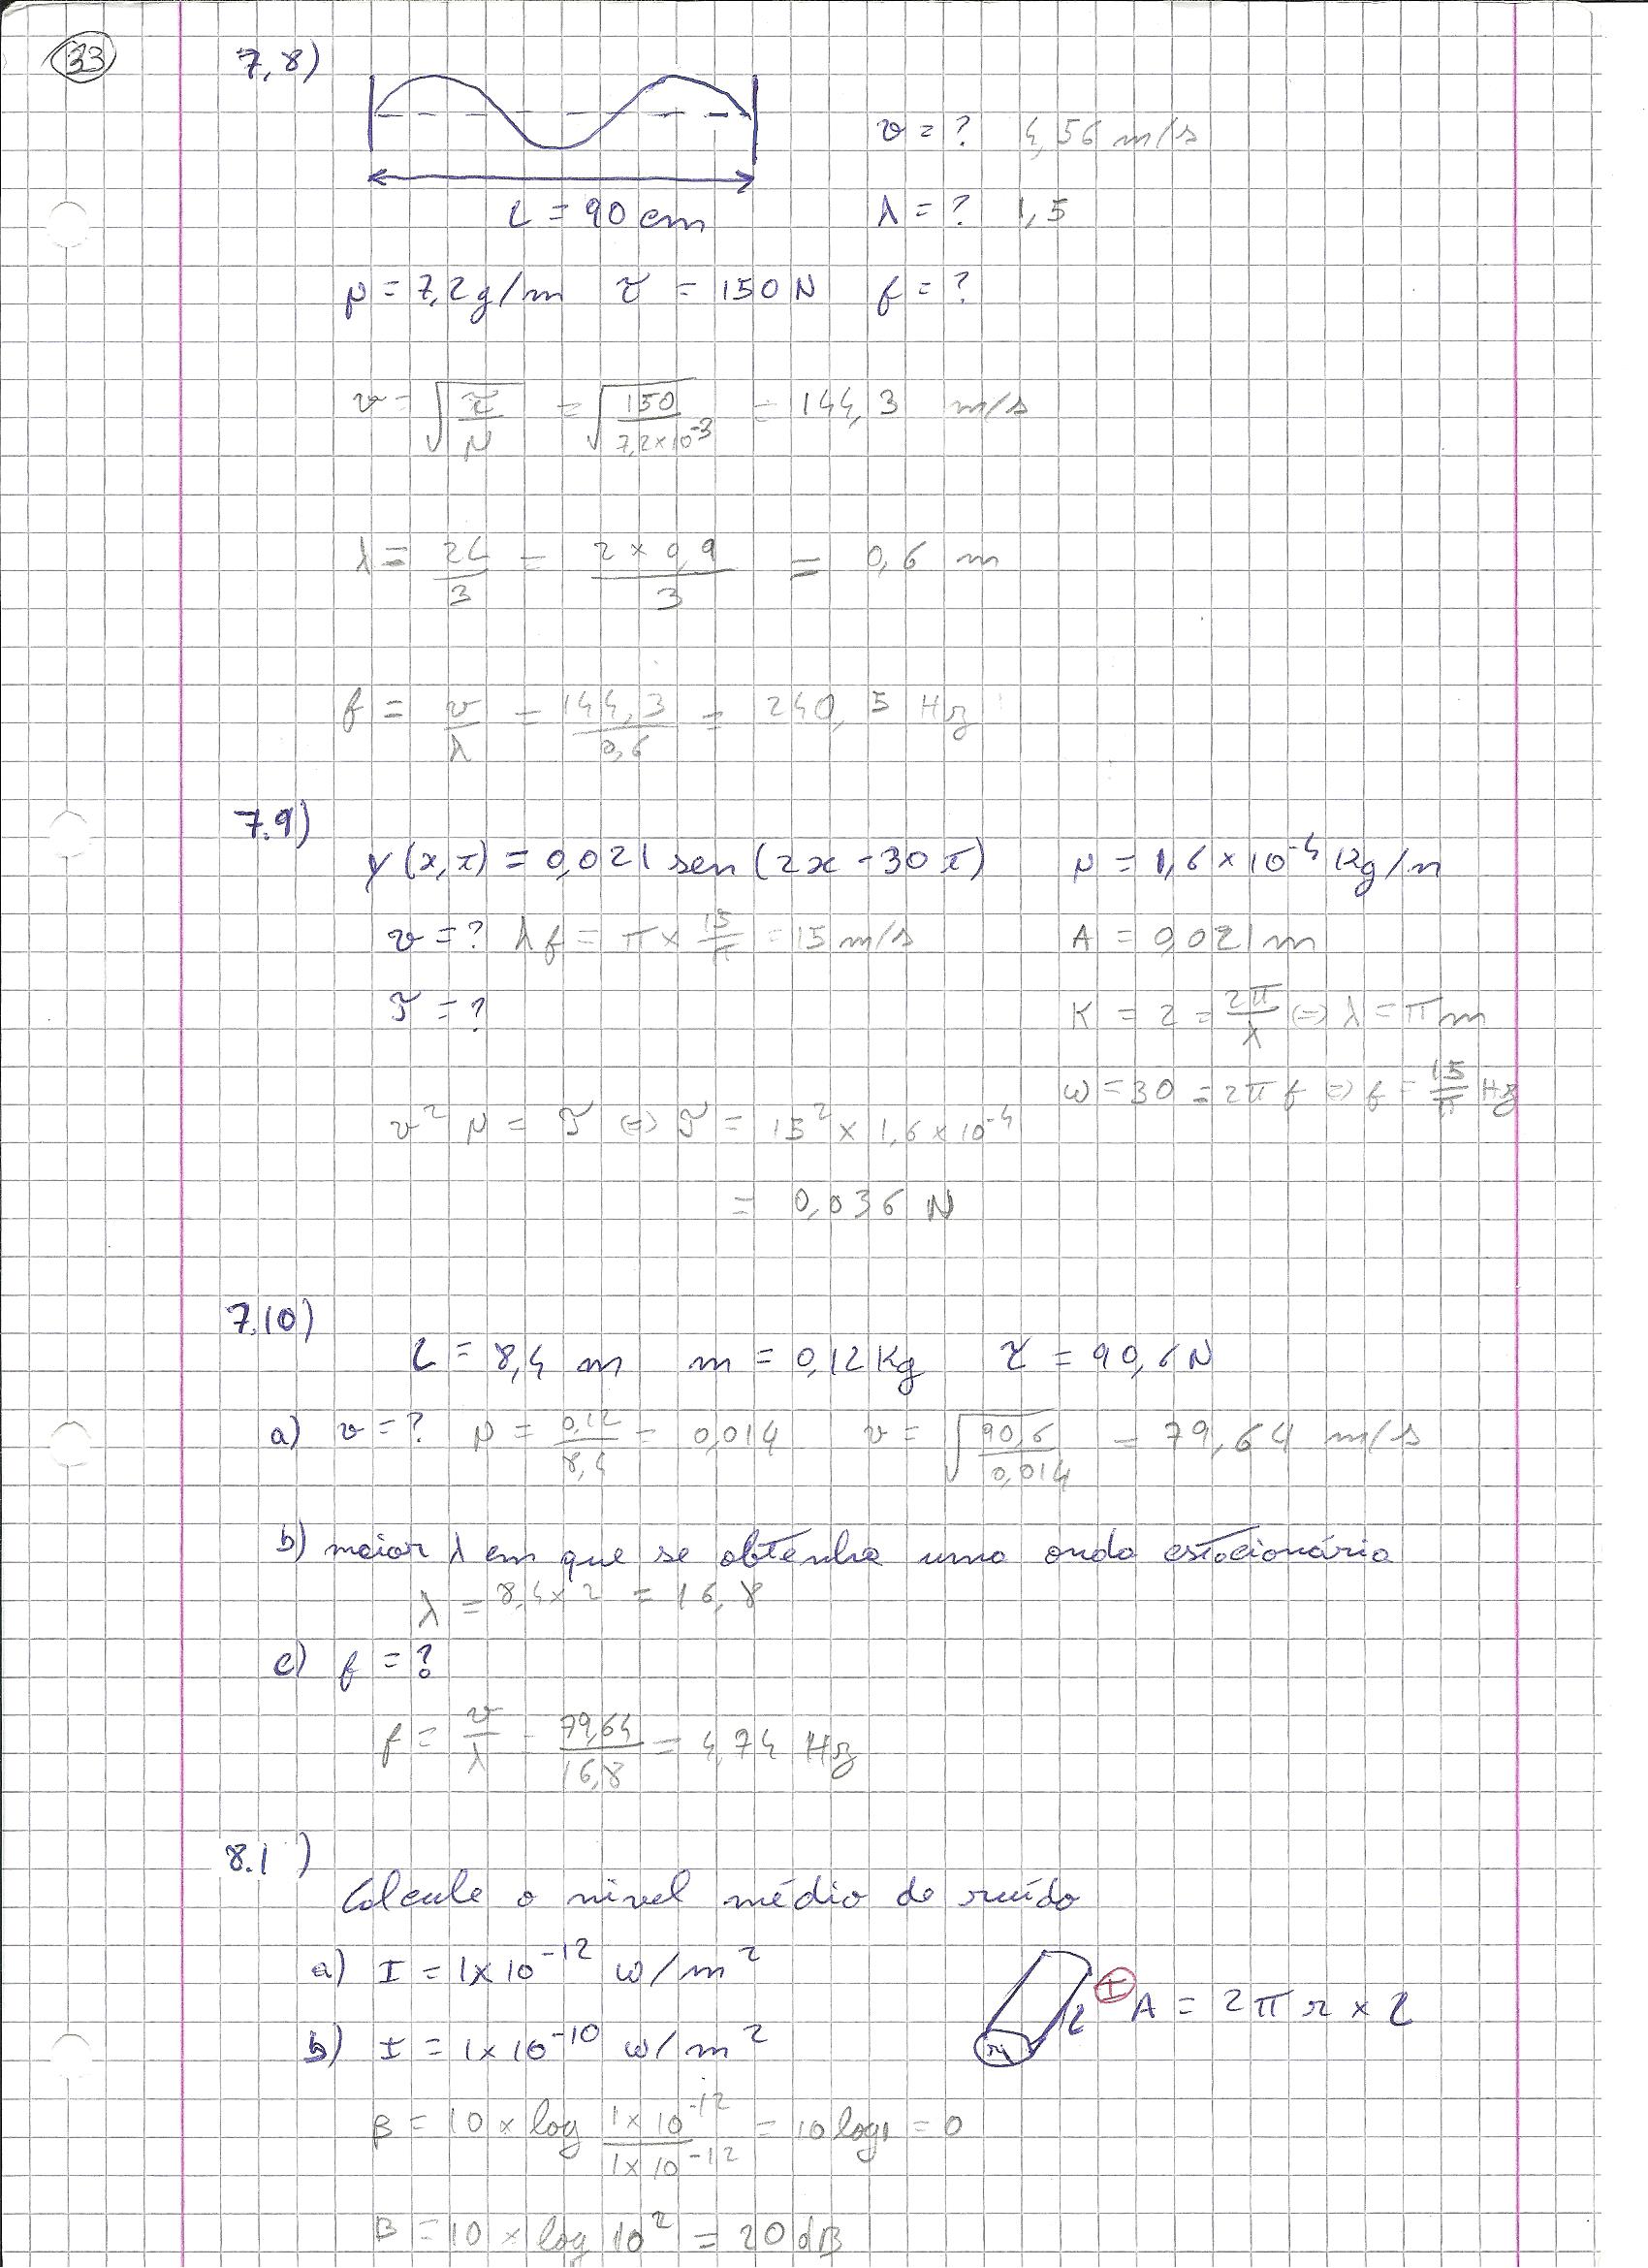 33
7,8)
v = ? 4,56 m/s
L = 90 cm
λ = ? 1,5
μ = 7,2 g/m τ = 150 N f = ?
v = √(τ/μ) = √(150/7,2×10^-3) = 144,3 m/s
λ = 2L/3 = 2 × 0,9/3 = 0,6 m
f = v/λ = 144,3/0,6 = 240,5 Hz
7.9)
y(x,t) = 0,021 sen(2x - 30t) μ = 1,6 × 10^-4 Kg/m
v = ? λf = π × 15/π = 15 m/s A = 0,021 m
τ = ? K = 2 = 2π/λ ⇔ λ = π m
ω = 30 = 2πf ⇔ f = 15/π Hz
v² μ = τ ⇔ τ = 15² × 1,6 × 10^-4
= 0,036 N
7.10)
L = 8,4 m m = 0,12 Kg τ = 90,6 N
a) v = ? μ = 0,12/8,4 = 0,014 v = √(90,6/0,014) = 79,64 m/s
b) maior λ em que se obtenha uma onda estacionária
λ = 8,4 × 2 = 16,8
c) f = ?
f = v/λ = 79,64/16,8 = 4,74 Hz
8.1)
Calcule o nivel médio do ruído
a) I = 1×10^-12 w/m²
r l I A = 2πr × l
b) I = 1×10^-10 w/m²
β = 10 × log 1×10^-12/1×10^-12 = 10 log1 = 0
β = 10 × log 10² = 20 dB